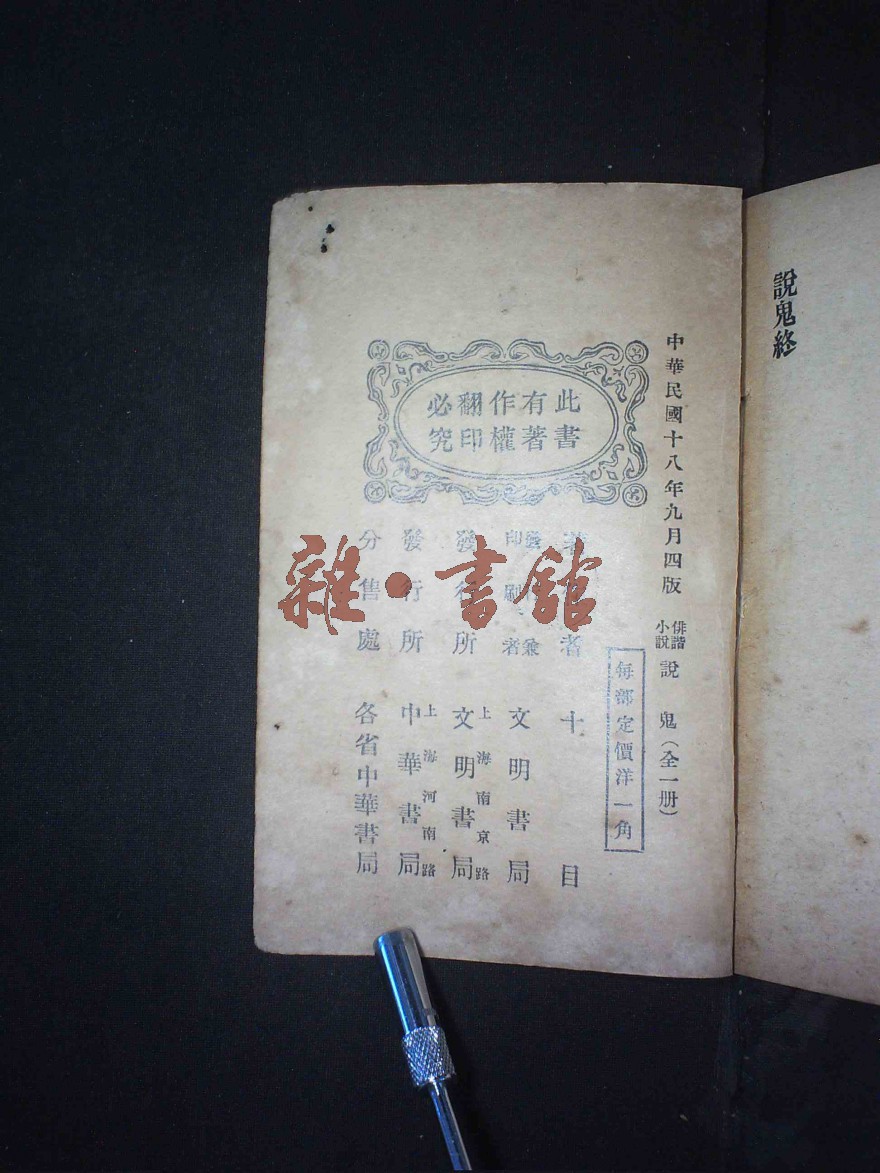 說鬼終
中華民國十八年九月四版
俳諧
小說
說鬼（全一册）
每部定價洋一角
此書
有著
作權
翻印
必究
著 者 十目
印刷 者 文明書局
發行所 上海南京路
文明書局
發行所 上海河南路
中華書局
分售處 各省中華書局
雜·書館